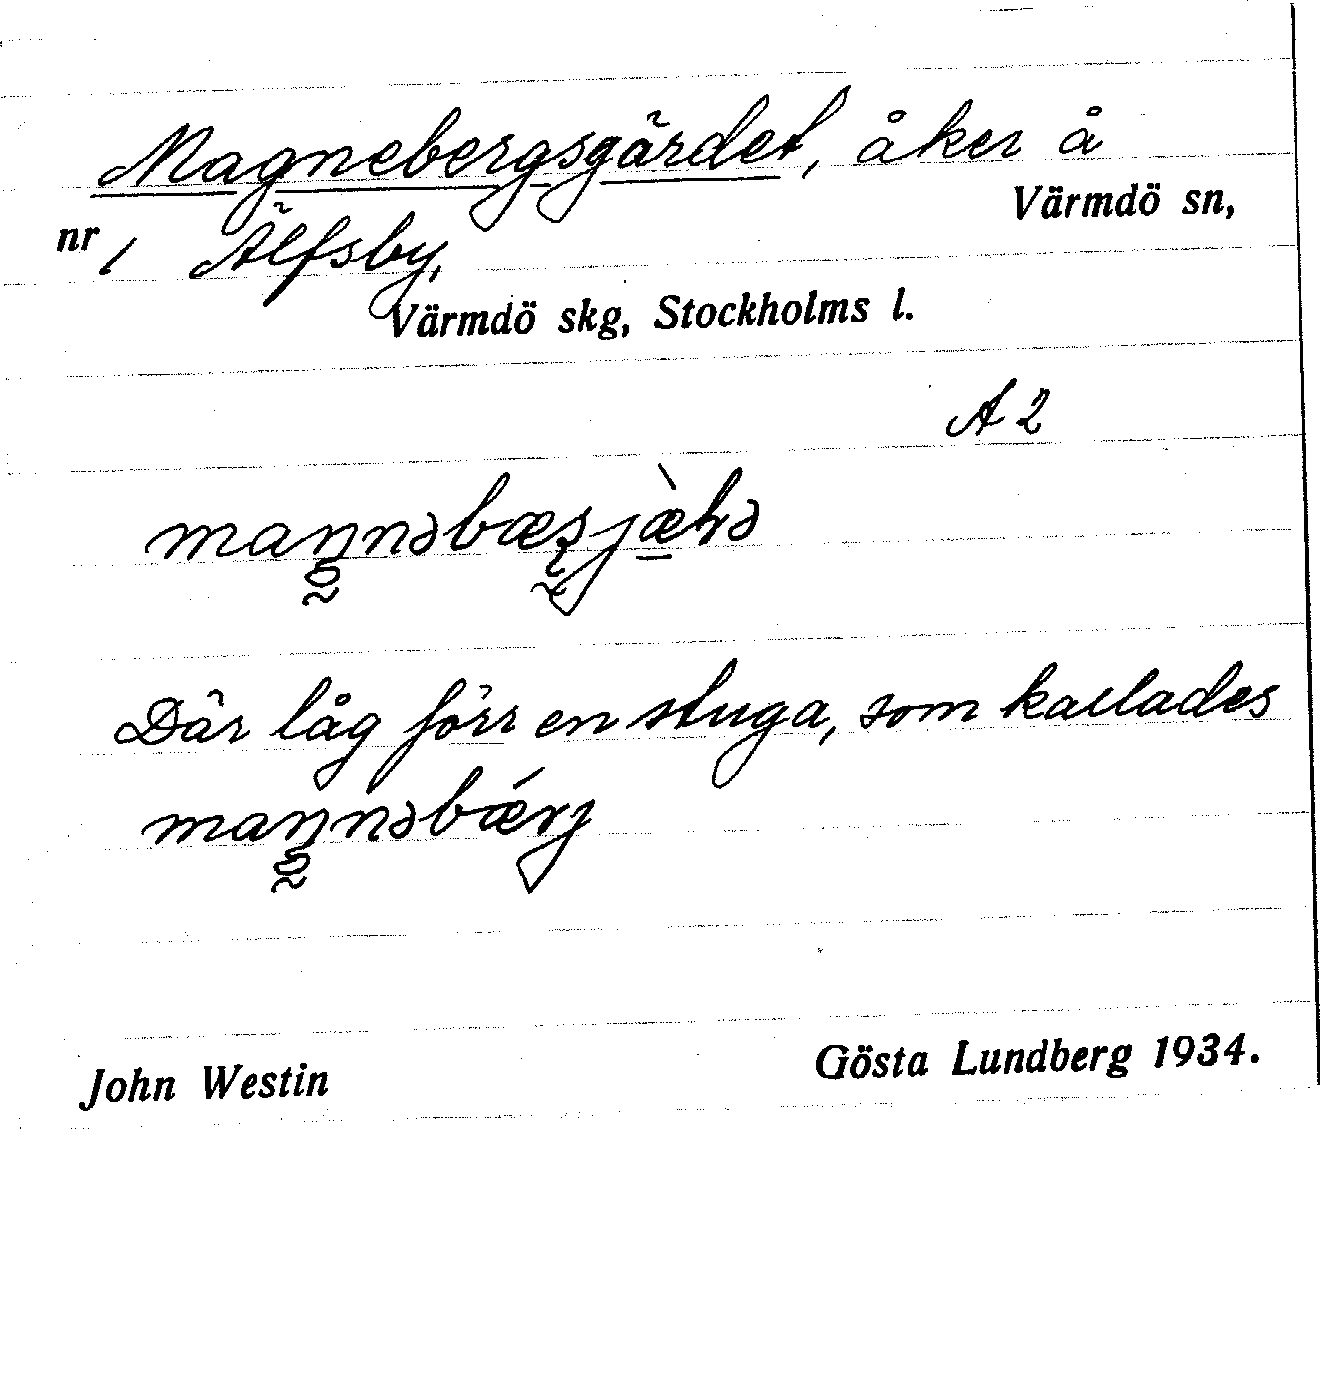 Magnebergsgärdet, åker å
Värmdö sn,
nr 1 Älfsby,
Värmdö skg, Stockholms l.
A 2
Där låg förr en stuga, som kallades
John Westin
Gösta Lundberg 1934.